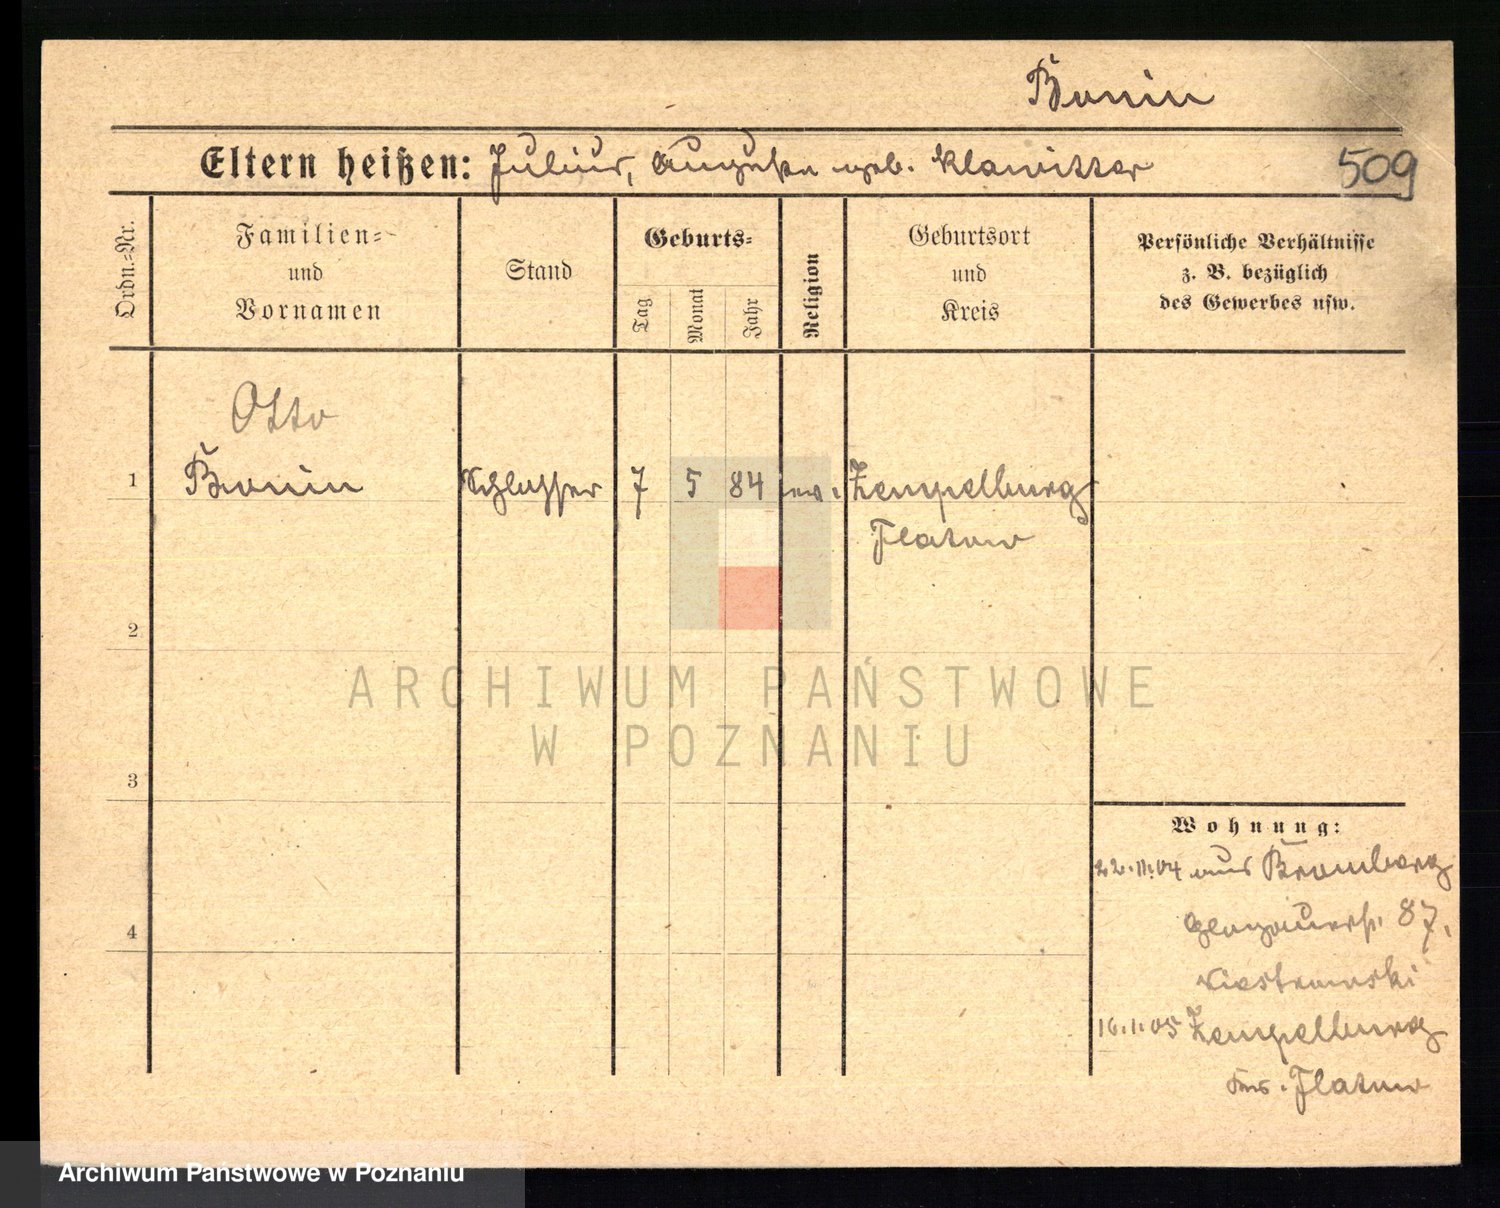 Bonin
Eltern heißen: Julius, Auguste geb. Klawitter
509
Ordn.-Nr.
Familien-
und
Vornamen
Stand
Geburts-
Tag
Monat
Jahr
Religion
Geburtsort
und
Kreis
Persönliche Verhältnisse
z. B. bezüglich
des Gewerbes usw.
Otto
1 Bonin Schlosser 7 5 84 ev. Zempelburg
Flatow
2
3
4
Wohnung:
22.11.04 aus Bromberg
Glogauerstr. 87,
16.1.05 Zempelburg
Krs. Flatow
ARCHIWUM PAŃSTWOWE
W POZNANIU
Archiwum Państwowe w Poznaniu